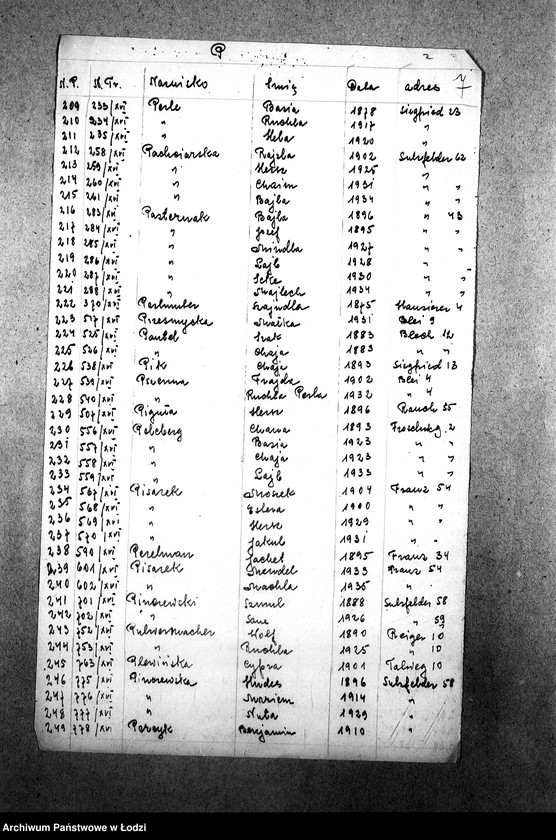 P 2
N.P. N.Tr. Nazwisko Imię Data adres 7
209 233/XVI Perle Basia 1878 Siegfried 23
210 234/XVI " Ruchla 1917 "
211 235/XVI " Heba 1920 "
212 258/XVI Pachciarska Rajzla 1902 Sulzfelder 62
213 259/XVI " Hersz 1925 "
214 260/XVI " Chaim 1931 " "
215 261/XVI " Bajla 1934 " "
216 283/XVI Pasternak Bajla 1896 " 43
217 284/XVI " Józef 1895 " "
218 285/XVI " Mindla 1927 " "
219 286/XVI " Lajb 1928 "
220 287/XVI " 1930 " "
221 288/XVI " Majlech 1934 " "
222 370/XVI Perlmuter Frajndla 1875 Hausierer 4
223 517/XVI Przemycka Malka 1931 Blei 9
224 525/XVI Pantel Izak 1883 Blech 12
225 526/XVI " Chaja 1883 " "
226 538/XVI Pik Chaja 1893 Siegfried 13
227 539/XVI Frajda 1902 Blei 4
228 540/XVI " Ruchla Perla 1932 " 4
229 507/XVI Piguła Hersz 1896 Rauch 55
230 556/XVI Pelcberg Chawa 1893 Froschweg 2
231 557/XVI " Basia 1923 " "
232 558/XVI " Chaja 1923 " "
233 559/XVI " Lajb 1933 " "
234 567/XVI Pisarek Moszek 1904 Franz 54
235 568/XVI " Estera 1900 " "
236 569/XVI " Hersz 1929 " "
237 570/XVI " Jakub 1931 " "
238 590/XVI Perelman Jachet 1895 Franz 34
239 601/XVI Pisarek Mendel 1933 Franz 54
240 602/XVI " Machla 1935 "
241 701/XVI Pinczewski Szmul 1888 Sulzfelder 58
242 702/XVI " Sura 1926 " 59
243 752/XVI Pulwermacher Wolf 1890 Reiger 10
244 753/XVI " Ruchla 1925 " 10
245 763/XVI Plewińska Cypra 1901 Talweg 10
246 775/XVI Pinczewska Hudes 1896 Sulzfelder 58
247 776/XVI " Mariem 1914 "
248 777/XVI " Nuta 1929 "
249 778/XVI Parzyk Benjamin 1910 "
Archiwum Państwowe w Łodzi